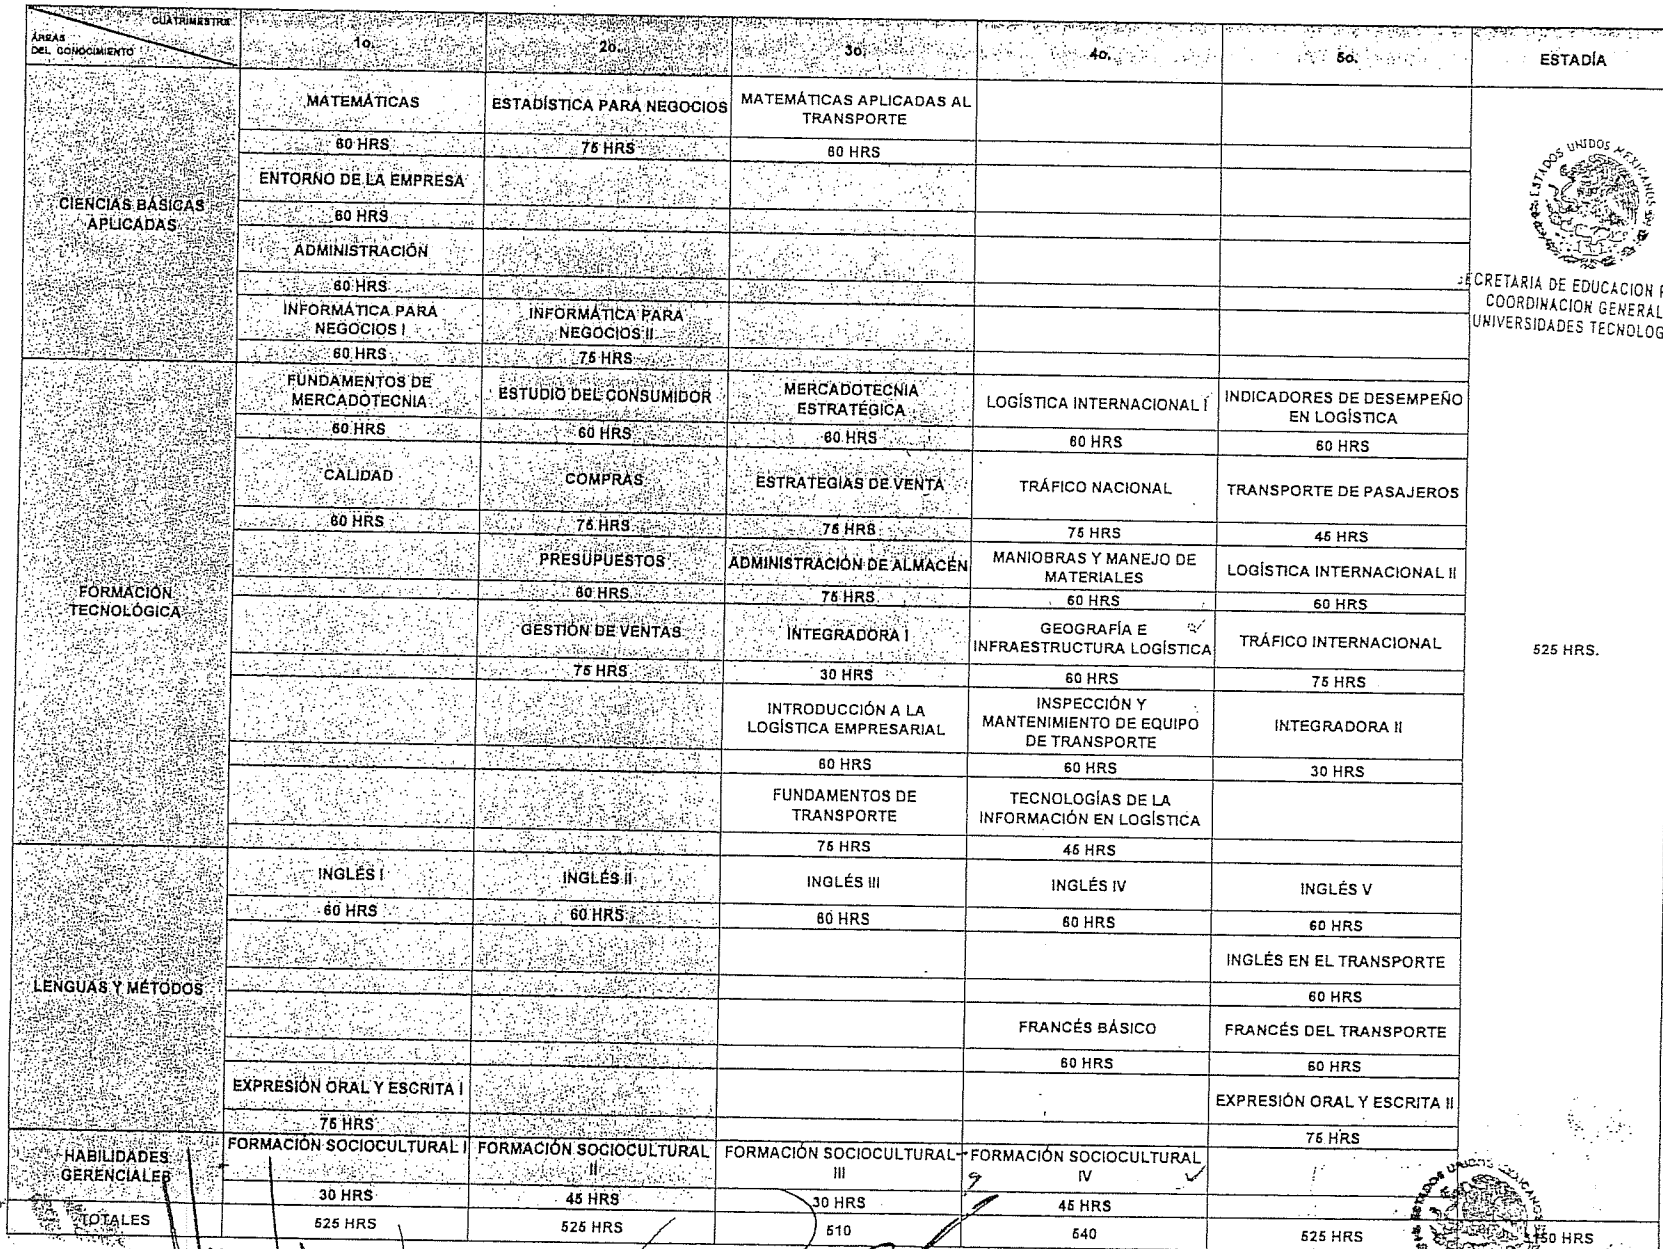 CUATRIMESTRE
ÁREAS
DEL CONOCIMIENTO
1o. 2o. 3o. 4o. 5o. ESTADÍA
CIENCIAS BÁSICAS
APLICADAS
MATEMÁTICAS ESTADÍSTICA PARA NEGOCIOS MATEMÁTICAS APLICADAS AL
TRANSPORTE
60 HRS 75 HRS 60 HRS
ENTORNO DE LA EMPRESA
60 HRS
ADMINISTRACIÓN
60 HRS
INFORMÁTICA PARA
NEGOCIOS I
INFORMÁTICA PARA
NEGOCIOS II
60 HRS 75 HRS
ESTADOS UNIDOS MEXICANOS
SECRETARIA DE EDUCACION P
COORDINACION GENERAL
UNIVERSIDADES TECNOLOG
FORMACIÓN
TECNOLÓGICA
FUNDAMENTOS DE
MERCADOTECNIA
ESTUDIO DEL CONSUMIDOR
MERCADOTECNIA
ESTRATÉGICA
LOGÍSTICA INTERNACIONAL I
INDICADORES DE DESEMPEÑO
EN LOGÍSTICA
60 HRS 60 HRS 60 HRS 60 HRS 60 HRS
CALIDAD COMPRAS ESTRATEGIAS DE VENTA TRÁFICO NACIONAL TRANSPORTE DE PASAJEROS
60 HRS 75 HRS 75 HRS 75 HRS 45 HRS
PRESUPUESTOS ADMINISTRACIÓN DE ALMACÉN
MANIOBRAS Y MANEJO DE
MATERIALES
LOGÍSTICA INTERNACIONAL II
60 HRS 75 HRS 60 HRS 60 HRS
GESTIÓN DE VENTAS INTEGRADORA I
GEOGRAFÍA E
INFRAESTRUCTURA LOGÍSTICA
TRÁFICO INTERNACIONAL
75 HRS 30 HRS 60 HRS 75 HRS
525 HRS.
INTRODUCCIÓN A LA
LOGÍSTICA EMPRESARIAL
INSPECCIÓN Y
MANTENIMIENTO DE EQUIPO
DE TRANSPORTE
INTEGRADORA II
60 HRS 60 HRS 30 HRS
FUNDAMENTOS DE
TRANSPORTE
TECNOLOGÍAS DE LA
INFORMACIÓN EN LOGÍSTICA
75 HRS 45 HRS
LENGUAS Y MÉTODOS
INGLÉS I INGLÉS II INGLÉS III INGLÉS IV INGLÉS V
60 HRS 60 HRS 60 HRS 60 HRS 60 HRS
INGLÉS EN EL TRANSPORTE
60 HRS
FRANCÉS BÁSICO FRANCÉS DEL TRANSPORTE
60 HRS 60 HRS
EXPRESIÓN ORAL Y ESCRITA I EXPRESIÓN ORAL Y ESCRITA II
75 HRS 75 HRS
HABILIDADES
GERENCIALES
FORMACIÓN SOCIOCULTURAL I
FORMACIÓN SOCIOCULTURAL
II
FORMACIÓN SOCIOCULTURAL
III
FORMACIÓN SOCIOCULTURAL
IV
30 HRS 45 HRS 30 HRS 45 HRS
TOTALES 525 HRS 525 HRS 510 540 525 HRS HRS